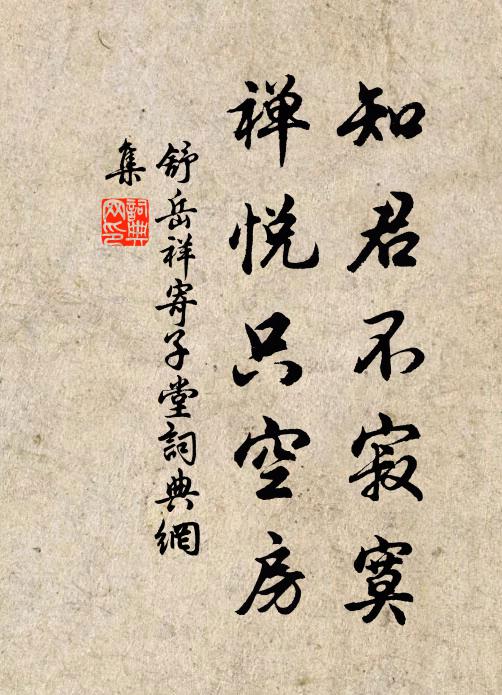 知君不寂寞
禅悦只空房
舒岳祥寄子堂詞典網
集
詞典網印